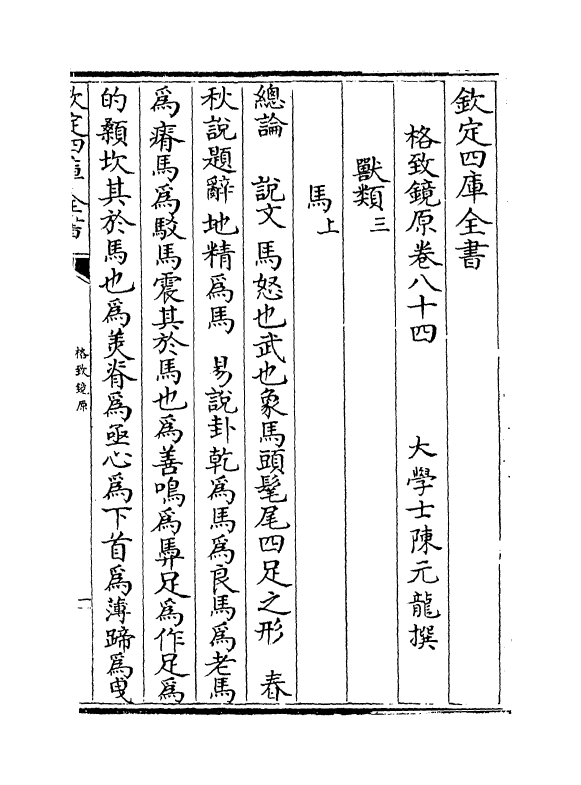 欽定四庫全書
格致鏡原卷八十四　大學士陳元龍撰
獸類三
馬上
總論　說文馬怒也武也象馬頭髦尾四足之形　春
秋說題辭地精爲馬　易說卦乾爲馬爲良馬爲老馬
爲瘠馬爲駁馬震其於馬也爲善鳴爲馵足爲作足爲
的顙坎其於馬也爲美脊爲亟心爲下首爲薄蹄爲曳
欽定四庫全書
格致鏡原
一